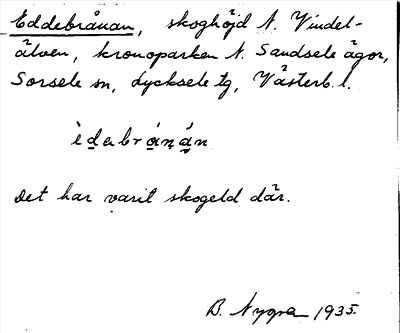 Eddebrånan, skoghöjd N. Vindel-
älven, kronoparken N. Sandsele ägor,
Sorsele sn, Lycksele tg, Västerb. l.
èdabrånån
Det har varit skogeld där.
B. Nygra 1935.